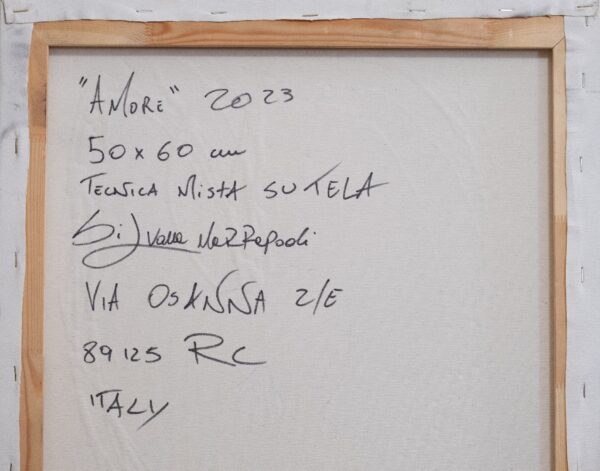 "AMORE" 2023
50 x 60 cm
TECNICA MISTA SU TELA
Silvana
VIA OSANNA 2/E
89125 RC
ITALY